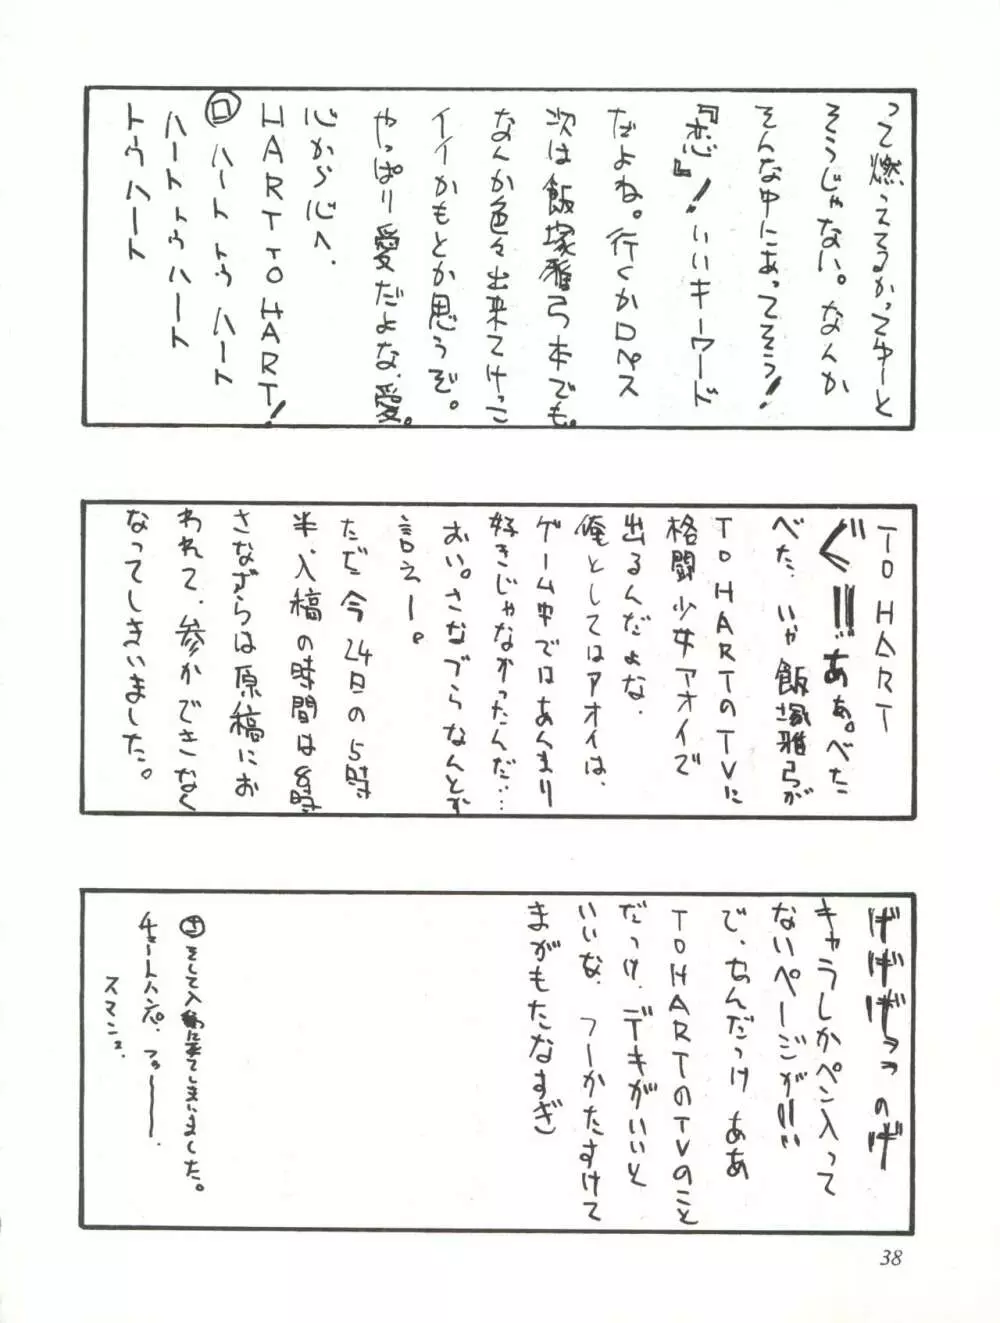 って燃えてるかってゆーと
そうじゃない。なんか
そんな中にあってそう!
『恋』!いいキーワード
だよね。行くかロペス
次は飯塚雅弓本でも。
なんか色々出来てけっこ
イイかもとか思うぞ。
やっぱり愛だよな、愛。
心から心へ、
HART TO HART!
ロ ハート トゥ ハート
ハート トゥ ハート
トゥハート
TO HART
ぐ!!!あぁ。べた
べた、いや飯塚雅弓が
TO HARTのTVに
格闘少女アオイで
出るんだよな、
俺としてはアオイは、
ゲーム中ではあんまり
好きじゃなかったんだ…
おい。さなづらなんとか
言えー。
ただ今24日の5時
半、入稿の時間は8時
さなづらは原稿にお
われて、参かできなく
なってしまいました。
げげげっっ のげ
キャラしかペン入って
ないページが!!!
で、なんだっけ ああ
TO HARTのTVのこと
だっけ、デキがいいと
いいな、フーかたすけて
まがもたなすぎ
そして入稿に来てしまいました。
チョートハンパ、フゥー
スマンネ、
38